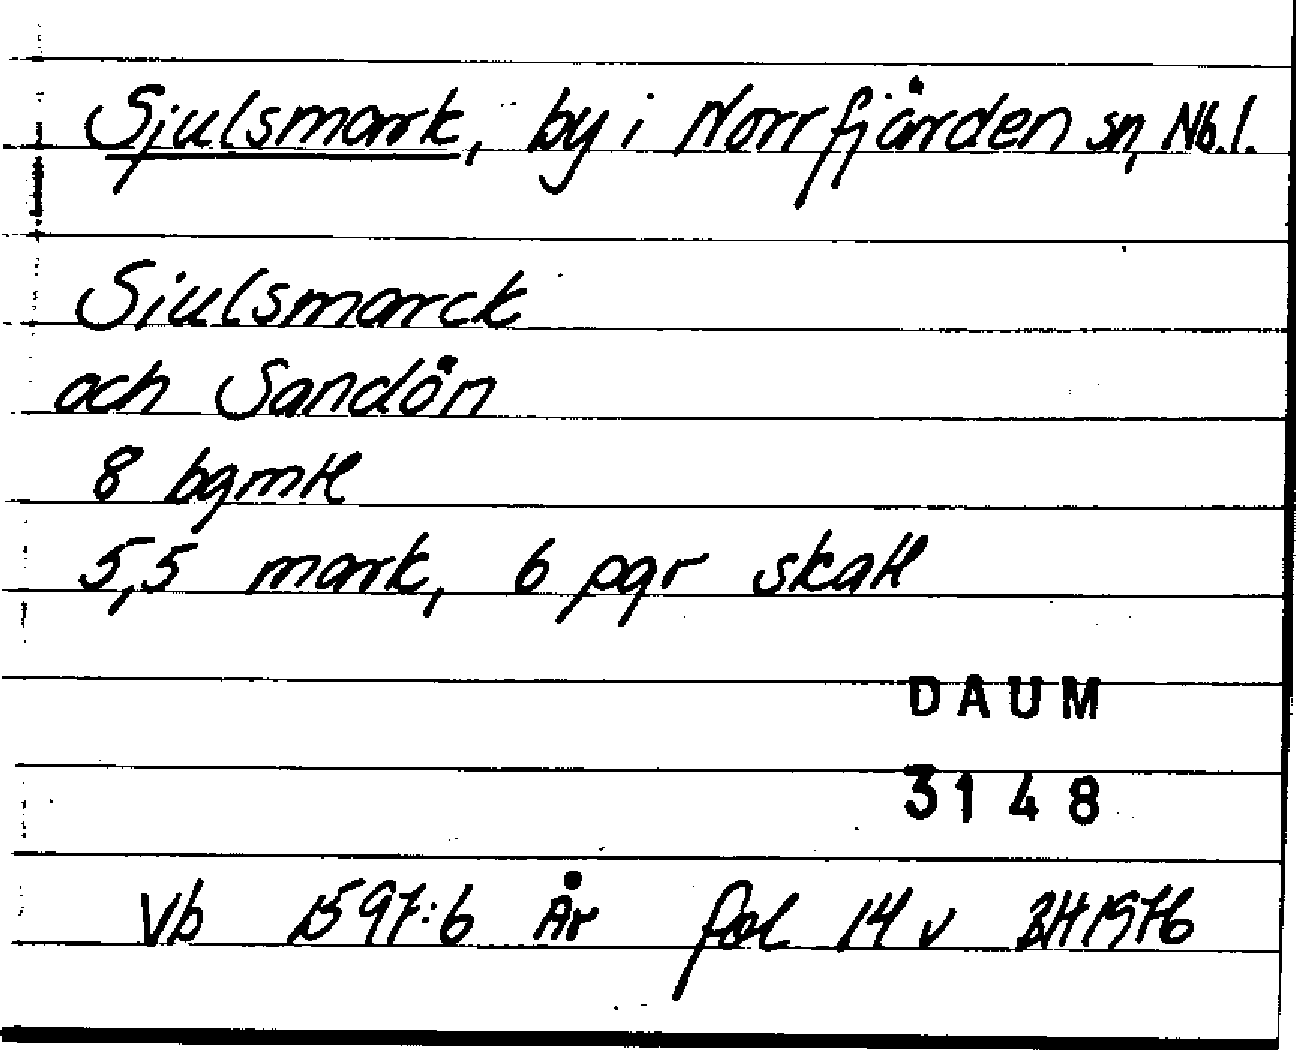 Sjulsmark, by i Norrfjärden sn, Nb.l.
Siulsmarck
och Sandön
8 bgmtl
5,5 mark, 6 pgr skatt
DAUM
3148
Vb 1597:6 År fol 14 v BH 1976